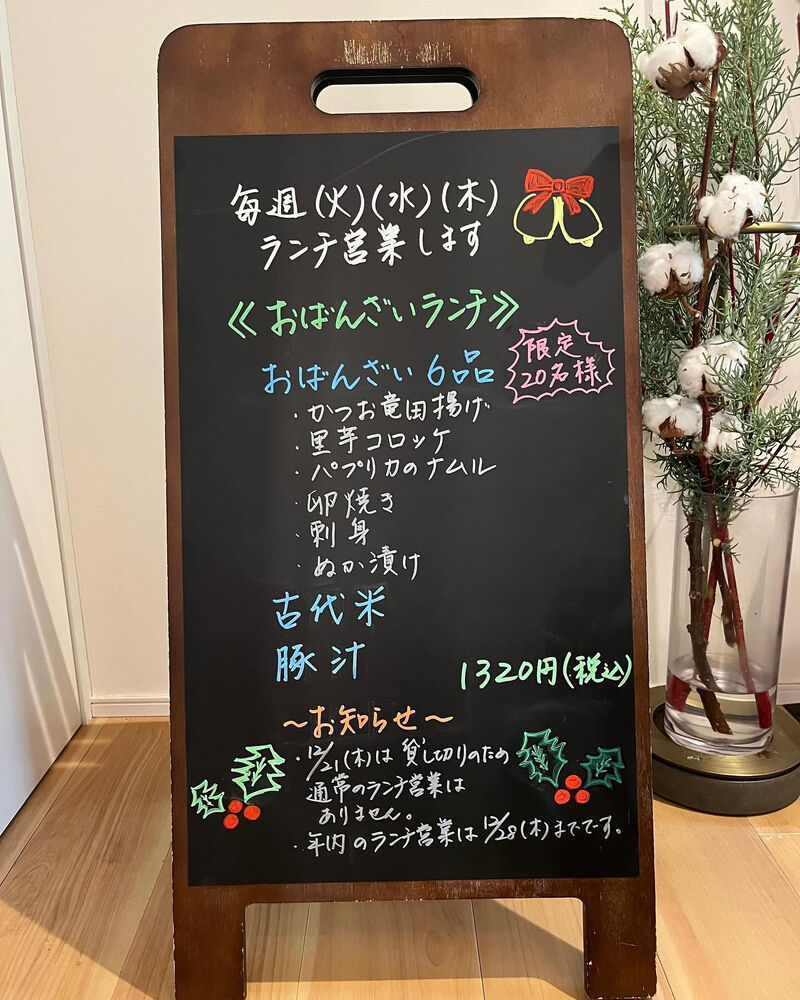 毎週(火)(水)(木)
ランチ営業します
≪おばんざいランチ≫
限定
20名様
おばんざい 6品
・かつお竜田揚げ
・里芋コロッケ
・パプリカのナムル
・卵焼き
・刺身
・ぬか漬け
古代米
豚汁
1320円(税込)
～お知らせ～
・12/21(木)は貸し切りのため
通常のランチ営業は
ありません。
・年内のランチ営業は12/28(木)までです。